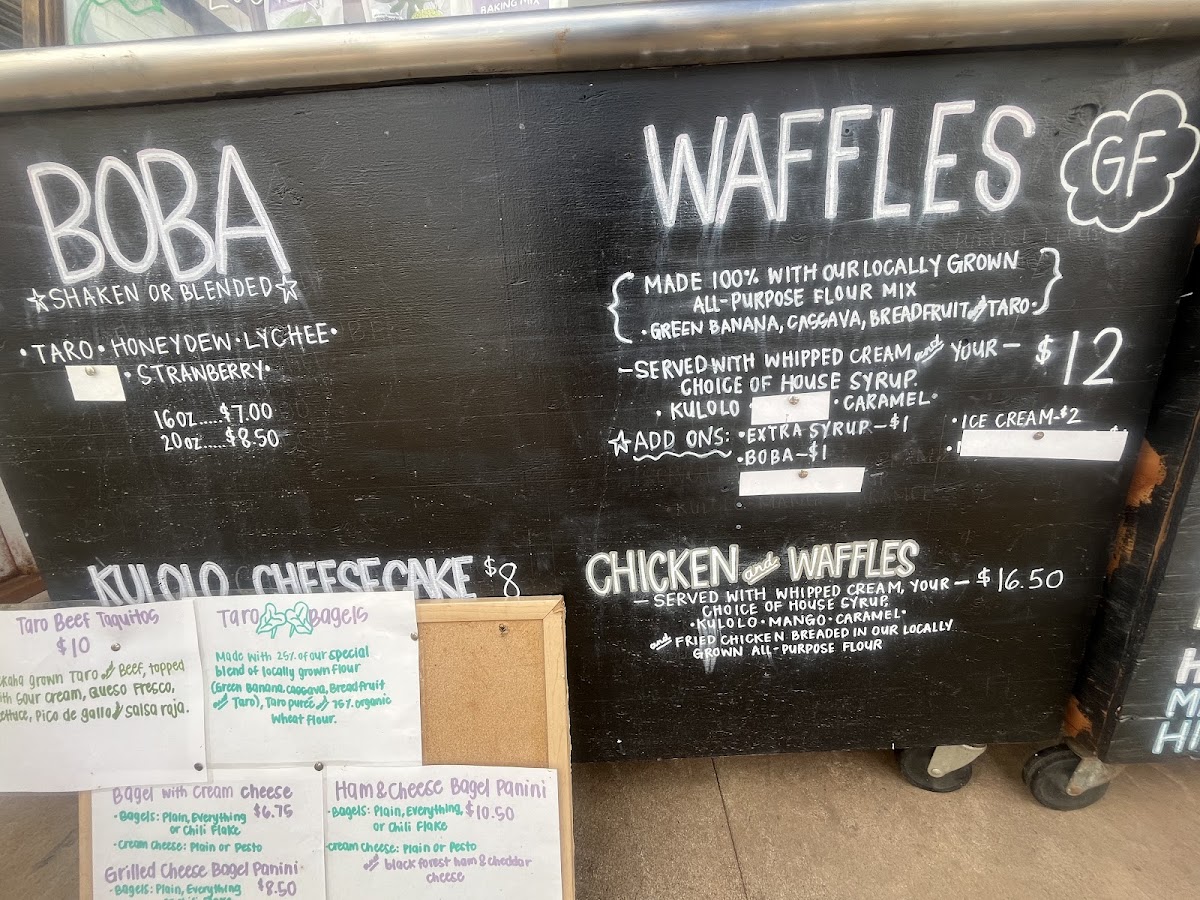 BAKING MIX
BOBA
SHAKEN OR BLENDED
• TARO • HONEYDEW • LYCHEE •
• STRANBERRY •
16oz.....$7.00
20oz.....$8.50
KULOLO CHEESECAKE $8
WAFFLES
GF
{ MADE 100% WITH OUR LOCALLY GROWN
ALL-PURPOSE FLOUR MIX
• GREEN BANANA, CASSAVA, BREADFRUIT and TARO • }
- SERVED WITH WHIPPED CREAM and YOUR - $12
CHOICE OF HOUSE SYRUP.
• KULOLO • CARAMEL •
ADD ONS: • EXTRA SYRUP - $1
• BOBA - $1
• ICE CREAM - $2
CHICKEN and WAFFLES
- SERVED WITH WHIPPED CREAM, YOUR - $16.50
CHOICE OF HOUSE SYRUP,
• KULOLO • MANGO • CARAMEL •
and FRIED CHICKEN BREADED IN OUR LOCALLY
GROWN ALL-PURPOSE FLOUR
Taro Beef Taquitos
$10
grown Taro and Beef, topped
Sour cream, Queso Fresco,
Pico de gallo and salsa roja.
Taro Bagels
Made with 25% of our special
blend of locally grown flour
(Green Banana, cassava, Breadfruit
and Taro), Taro pureé and 75% organic
wheat flour.
Bagel with cream cheese
• Bagels: Plain, Everything $6.75
or Chili Flake
• Cream Cheese: Plain or Pesto
Grilled Cheese Bagel Panini
• Bagels: Plain, Everything $8.50
Ham & Cheese Bagel Panini
• Bagels: Plain, Everything, $10.50
or Chili Flake
• cream cheese: Plain or Pesto
and black forest ham & cheddar
cheese